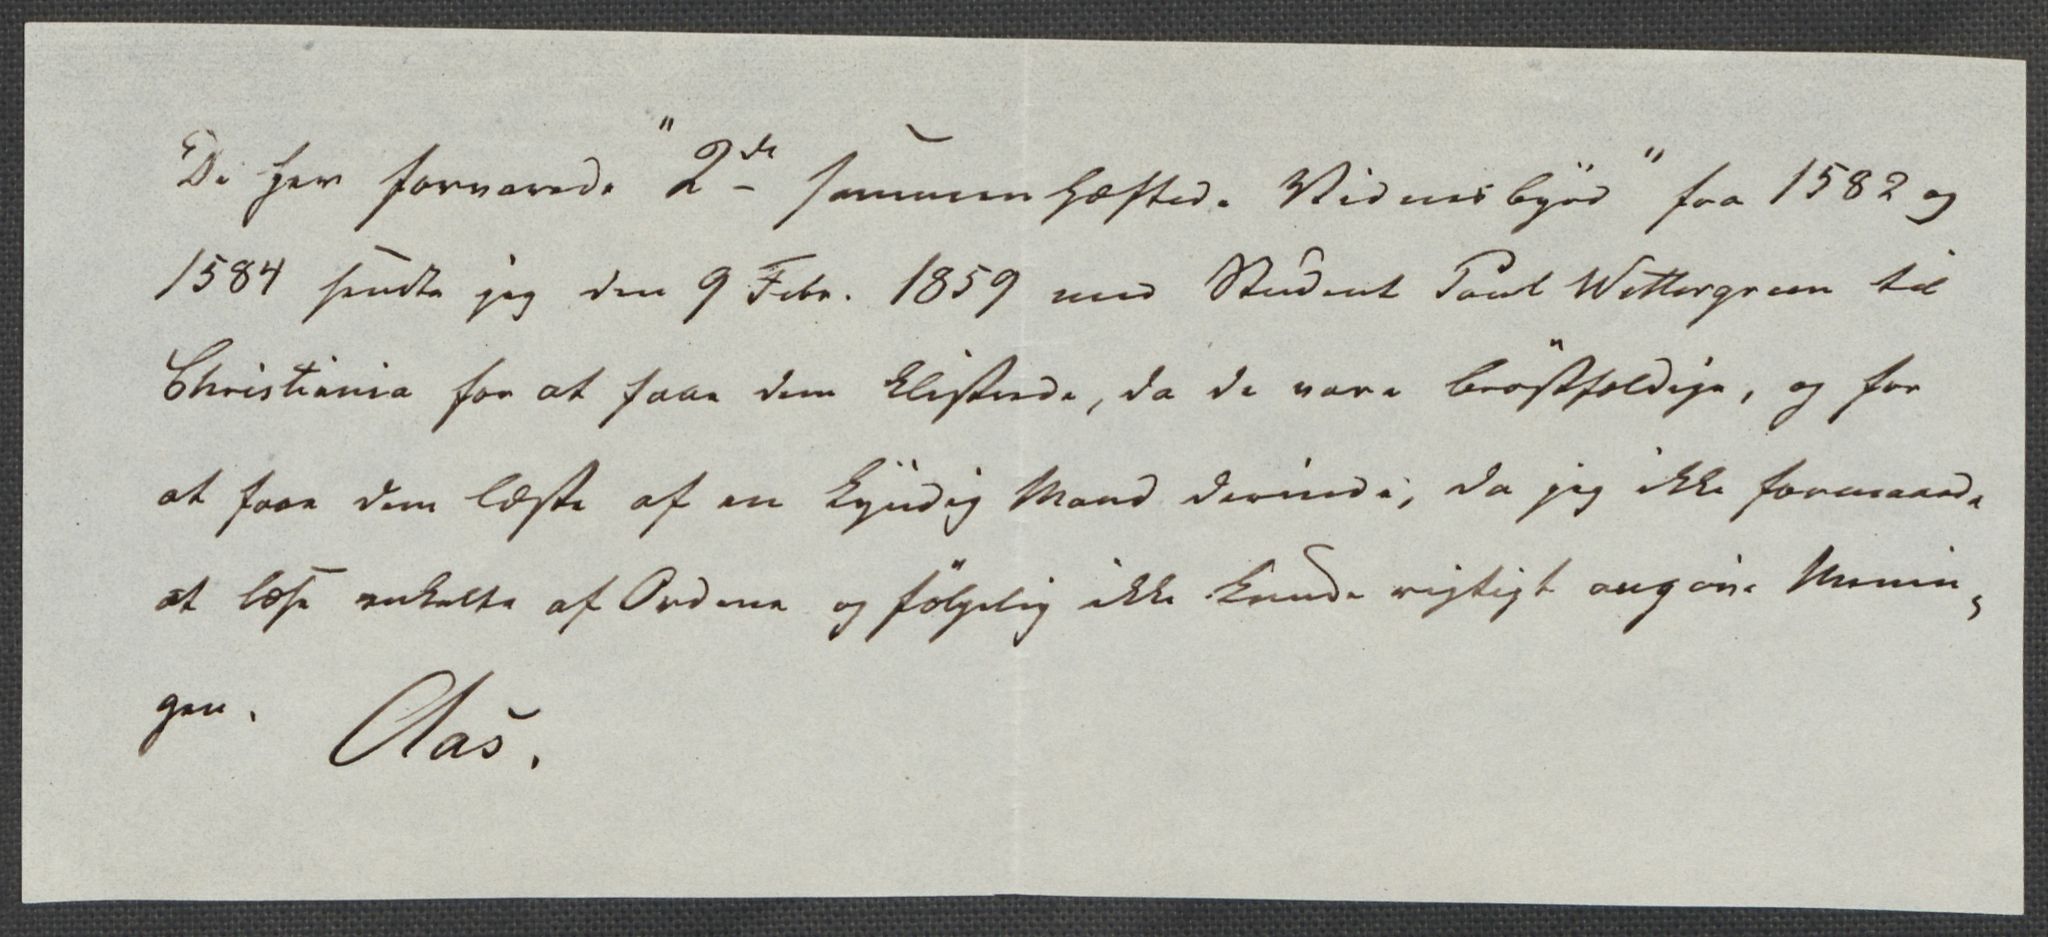 De her forvarede "2de sammenhæftede Vidnesbyrd" fra 1582 og
1584 sendte jeg den 9 Febr. 1859 med Student Paul Wettergreen til
Christiania for at faae dem klistrede, da de vare bröstfeldige, og for
at faae dem læste af en kyndig Mand derinde, da jeg ikke formaaede
at læse enkelte af Ordene og fölgelig ikke kunde rigtigt angive Menin-
gen. Aas.